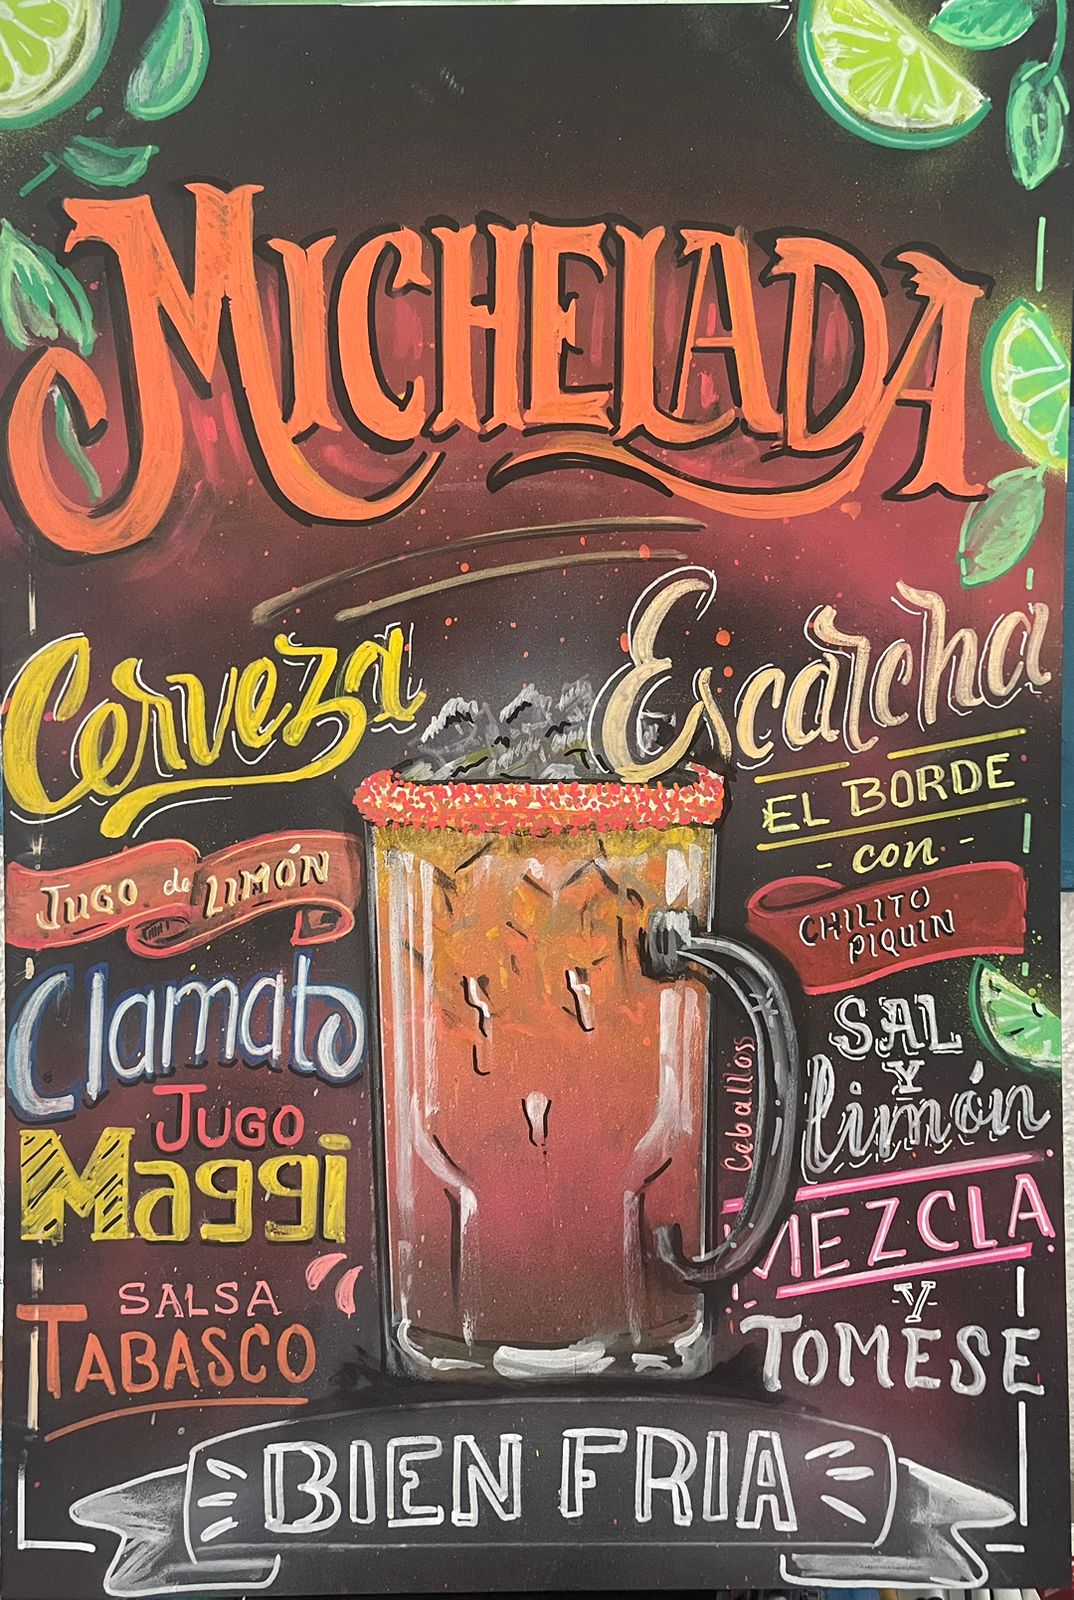 MICHELADA
Cerveza
JUGO de LIMÓN
Clamato
JUGO
Maggi
SALSA
TABASCO
Escarcha
EL BORDE
- con -
CHILITO
PIQUIN
SAL
Y
limón
MEZCLA
Y
TOMESE
Ceballoss
BIEN FRIA